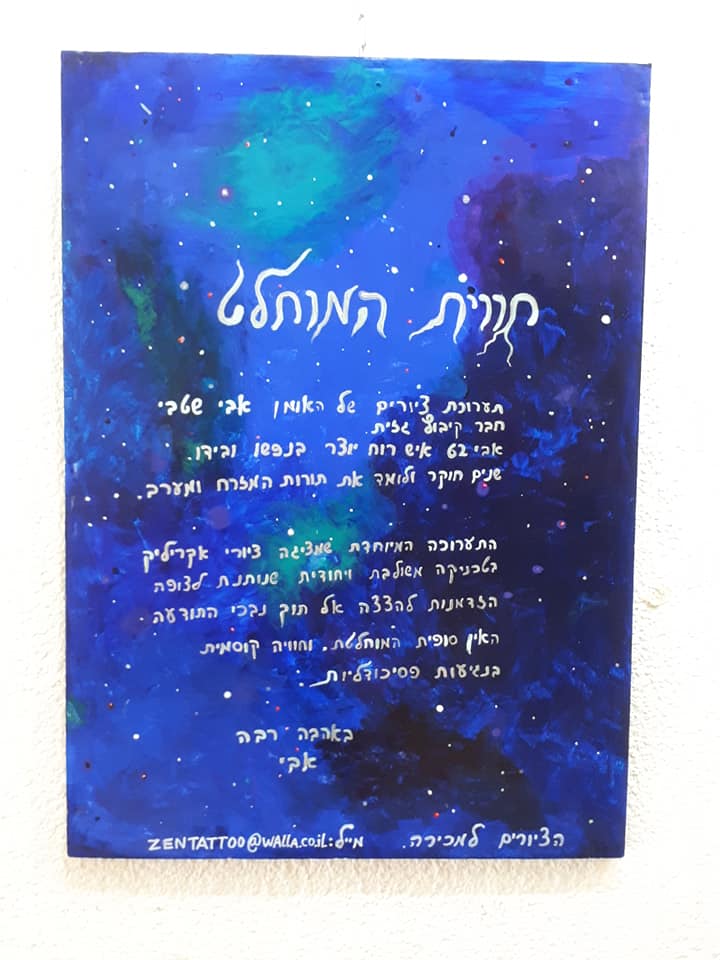 חווית המוחלט
תערוכת ציורים של האומן אבי שטבי
חבר קיבוץ גזית.
אבי 62 איש רוח יוצר בנפשו ובידו.
שנים חוקר ולומד את תורות המזרח ומערב.
התערוכה המיוחדת שמציגה ציורי אקריליק
בטכניקה משולבת ויחודית שנותנת לצופה
הזדמנות להצצה אל תוך נבכי התודעה
האין סופית המוחלטת. וחוויה קוסמית
בנגיעות פסיכודליות.
באהבה רבה
אבי
הציורים למכירה. מייל: ZENTATTOO@WALLA.co.iL